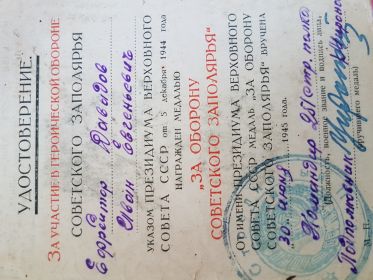 УДОСТОВЕРЕНИЕ
ЗА УЧАСТИЕ В ГЕРОИЧЕСКОЙ ОБОРОНЕ
СОВЕТСКОГО ЗАПОЛЯРЬЯ
Ефрейтор Давидов
Иван Евгеньевич
УКАЗОМ ПРЕЗИДИУМА ВЕРХОВНОГО
СОВЕТА СССР от 5 декабря 1944 года
НАГРАЖДЕН МЕДАЛЬЮ
„ЗА ОБОРОНУ
СОВЕТСКОГО ЗАПОЛЯРЬЯ“
ОТ ИМЕНИ ПРЕЗИДИУМА ВЕРХОВНОГО
СОВЕТА СССР МЕДАЛЬ „ЗА ОБОРОНУ
СОВЕТСКОГО ЗАПОЛЯРЬЯ“ ВРУЧЕНА
30 июля 1945 года.
Командир стр. полка
(Должность, военное звание и подпись лица,
Подполковник
вручившего медаль)
М. П.